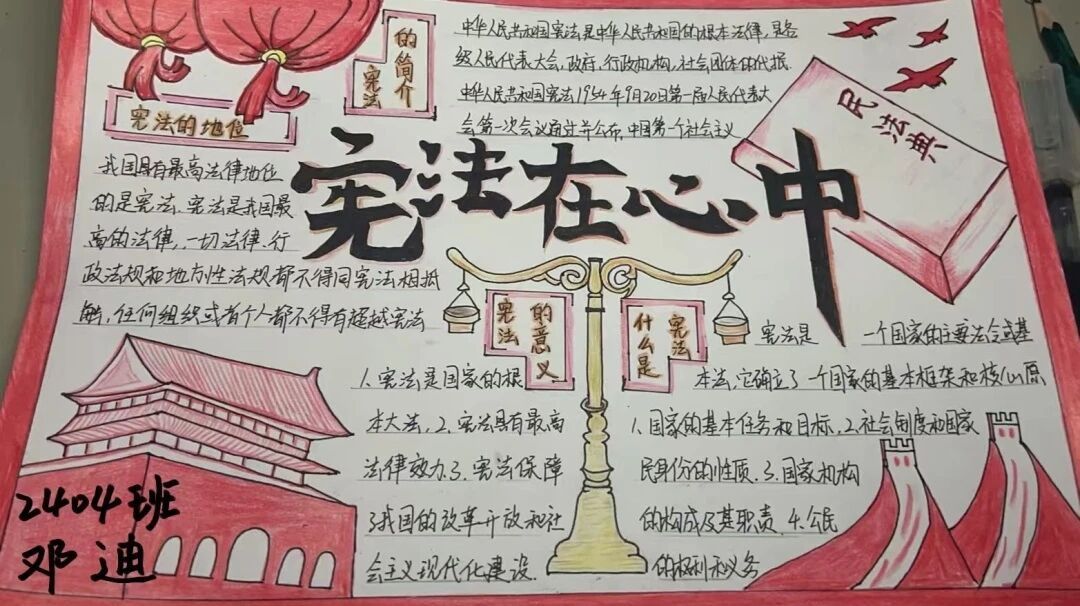 宪法的简介
中华人民共和国宪法是中华人民共和国的根本法律,是各
级人民代表大会,政府,行政机构,社会团体的代据.
中华人民共和国宪法1954年9月20日第一届人民代表大
会第一次会议通过并公布,中国第一个社会主义
民法典
宪法在心中
宪法的地位
我国具有最高法律地位
的是宪法,宪法是我国最
高的法律,一切法律、行
政法规和地方性法规都不得同宪法相抵
触,任何组织或者个人都不得有超越宪法
宪法的意义
1.宪法是国家的根
本大法,2.宪法具有最高
法律效力3.宪法保障
了我国的改革开放和社
会主义现代化建设.
什么是宪法
宪法是 一个国家的主要法令或基
本法,它确立了一个国家的基本框架和核心原
1.国家的基本任务和目标,2.社会制度和国家
民身份的性质.3.国家机构
的构成及其职责.4.公民
的权利和义务
2404班
邓迪